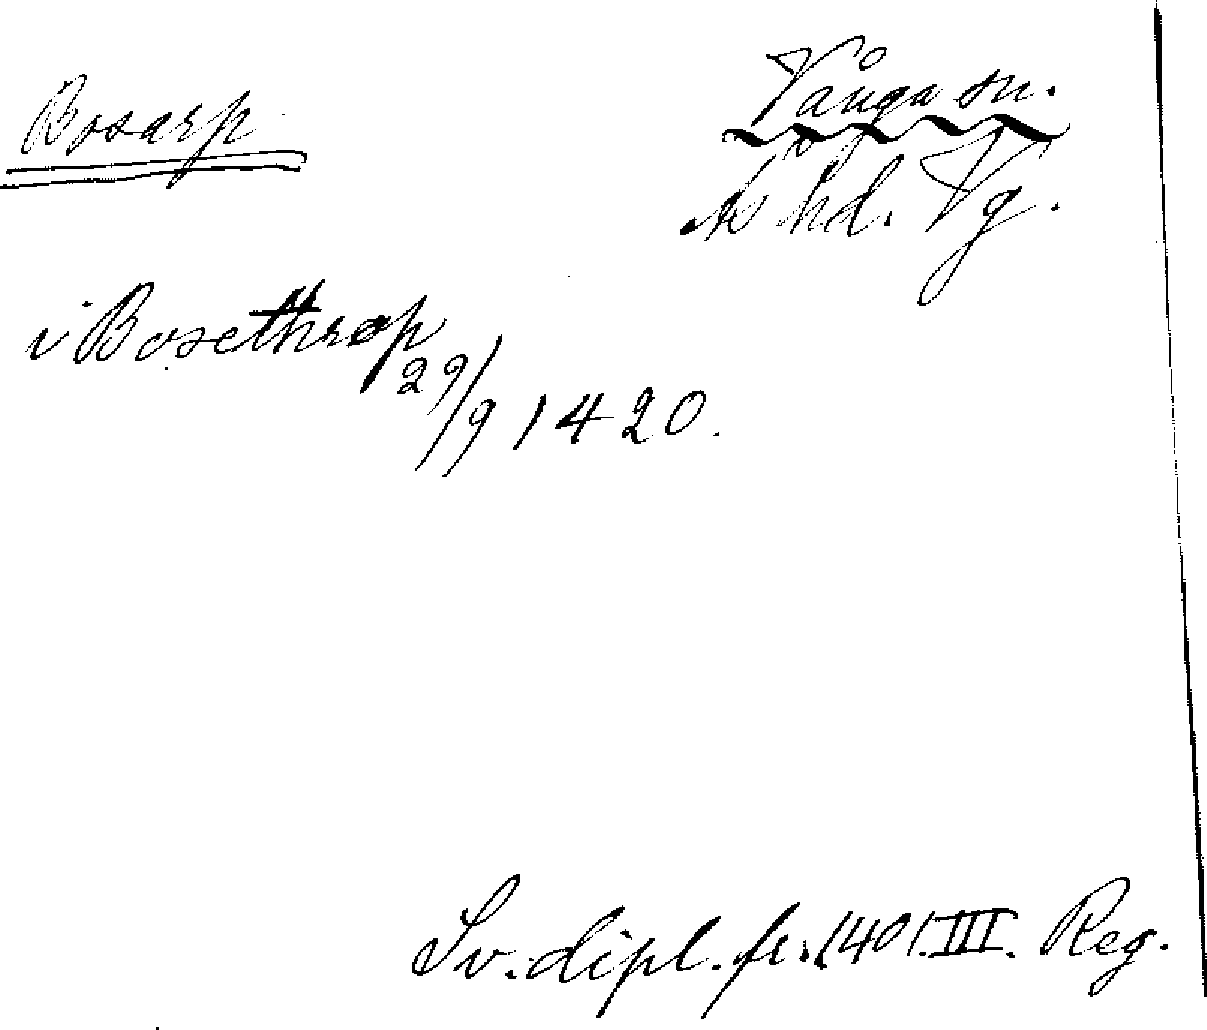 Bosarp
Vånga sn.
Ås hd. Vg.
i Bosethrop
29/9 1420.
Sv. dipl. fr. 1401. III. Reg.